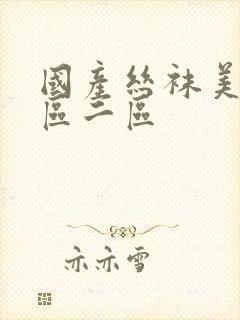 國產絲袜美
區二區
亦亦雪